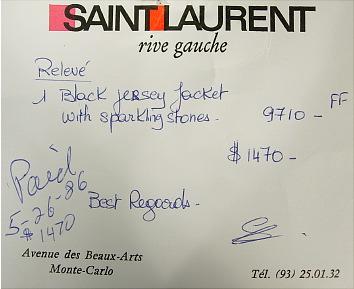 SAINT LAURENT
rive gauche
Relevé
1 Black jersey Jacket
with sparkling stones.
9710 - FF
$ 1470 -
Paid
5-26-86
$ 1470
Best Regards.
Avenue des Beaux-Arts
Monte-Carlo
Tél. (93) 25.01.32